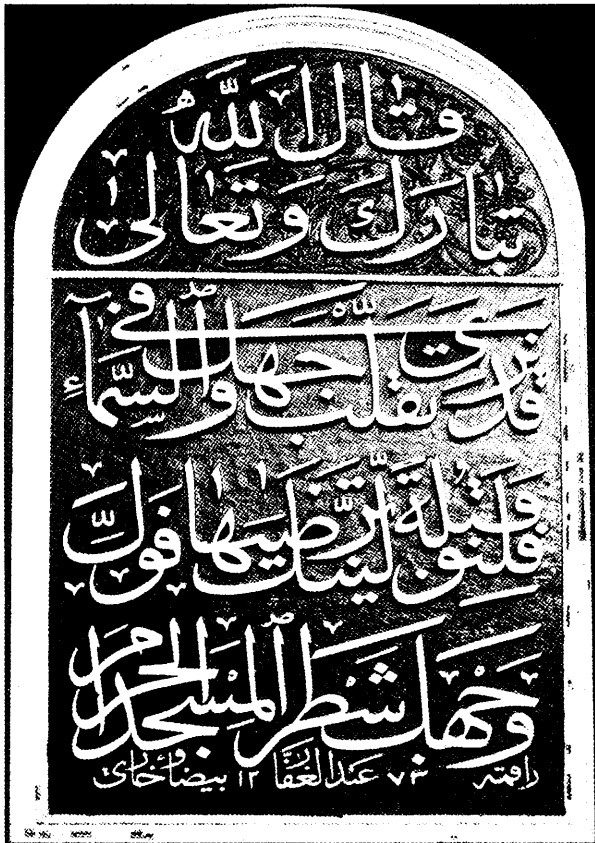 قال الله
تبارك وتعالى
قد نرى تقلب وجهك في السماء
فلنولينك قبلة ترضيها فول
وجهك شطر المسجد الحرام
راقمه ٧٣ عبدالغفار ١٢